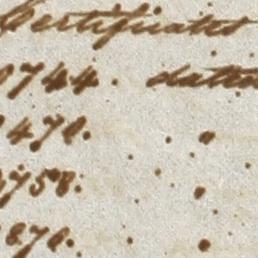 Certificates
0744. dated
470.
758.
270.